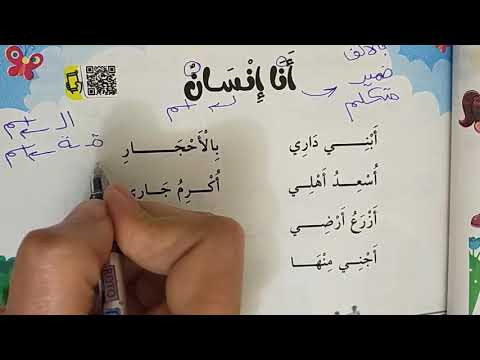 أَنَا إِنْسَانٌ
بالألف
ضمير
متكلم
ال ← اسم
ـة ة ← اسم
ـٌ ← اسم
أَبْنِي دَارِي بِالْأَحْجَـــارِ
أُسْعِدُ أَهْلِي أُكْرِمُ جَارِي
أَزْرَعُ أَرْضِـــي
أَجْنِي مِنْهَـــا